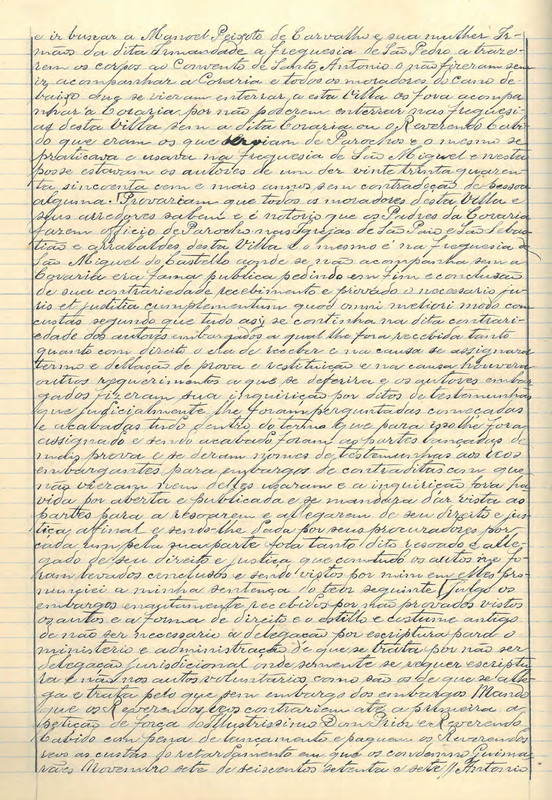 e ir buscar a Manoel Peixoto de Carvalho e sua mulher Ir-
mãos da dita Irmandade a freguesia de São Pedro a traze-
rem os corpos ao Convento de Santo Antonio o não fizeram sem
ir acompanhar a Coraria e todos os moradores do cano de-
baixo que se vieram enterrar a esta Villa os fora acompa-
nhar a Coraria por não poderem enterrar nas freguesi-
as desta Villa sem a dita Coraria ou o Reverendo Cabi-
do que eram os que serviam de Parochos e o mesmo se
praticava e usava na freguesia de São Miguel e nesta
posse estavam os autores de um dez vinte trinta quaren-
ta, sincoenta cem e mais annos sem contradição de pessoa
alguma. Provariam que todos os moradores desta Villa e
seus arredores sabem e é notorio que os Padres da Coraria
fazem officio de Parocho nas Igrejas de São Paio e São Sebas-
tião e arrabaldes desta Villa e o mesmo é na freguesia de
São Miguel do Castello aonde se não acompanha sem a
Coraria era fama publica pedindo em fim e conclusão
de sua contrariedade recebimento e provado o necessario ju-
ris et justitia cumplementum quod omni meliori modo com
custas segundo que tudo assi se continha na dita contrari-
edade dos autores embargados a qual lhe fora recebida tanto
quanto com direito o era de receber e na causa se assignara
termo e dillação de prova e restituição e na causa houveram
outros requerimentos a que se deferira e os autores embar-
gados fizeram sua inquirição por ditos de testemunhas
que judicialmente lhe foram perguntadas começadas
e acabadas tudo dentro do termo que para isso lhe fora
assignado e sendo acabado foram as partes lançadas de
mais prova e se deram nomes de testemunhas aos reos
embargantes para embargos de contraditas com que
não vieram nem delles usaram e a inquirição fora ha-
vida por aberta e publicada e se mandara dar vista as
partes para a resoarem e allegarem de seu direito e jus-
tiça affinal e sendo-lhe dada por seus procuradores por
cada um pela sua parte fora tanto dito resoado e alle-
gado de seu direito e justiça que comtudo os autos me fo-
ram levados conclusos e sendo vistos por mim em elles pro-
nunciei a minha sentença do teor seguinte / Julgo os
embargos enquitamente recebidos por não provados vistos
os autos e a forma de direito e o estillo e costume antigo
de não ser necessario a delegação por escriptura para o
ministerio e administração de que se trata por não ser
delegação jurisdicional onde somente se requer escriptu-
ra e não nos autos voluntarios como são os de que se alle-
ga e trata pelo que sem embargo dos embargos Mando
que os Reverendos reos contrariem até a primeira a
petição de força do Illustrissimo Dom Prior e Reverendo
Cabido com pena de lançamento e paguem os Reverendos
reos as custas do retardamento em que os condemno Guima-
rães Novembro sete de seiscentos setenta e sete // Antonio